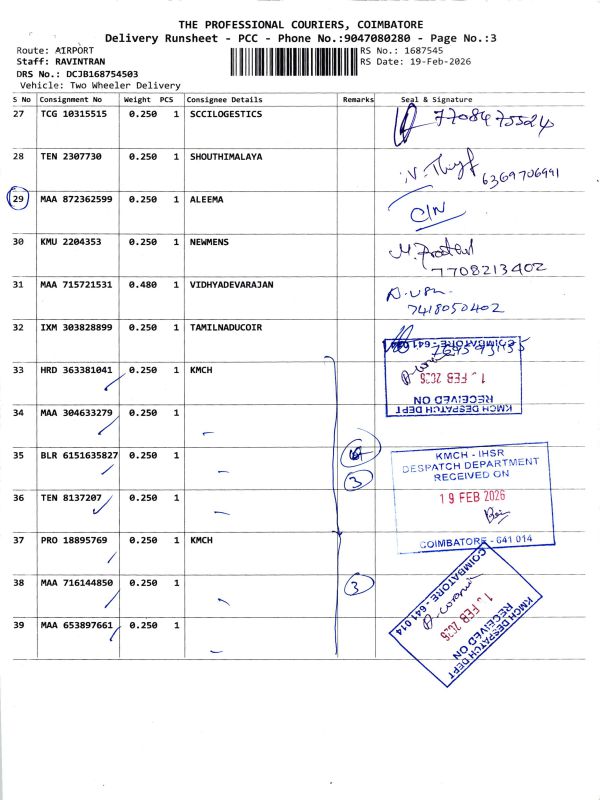 THE PROFESSIONAL COURIERS, COIMBATORE
Delivery Runsheet - PCC - Phone No.:9047080280 - Page No.:3
Route: AIRPORT
Staff: RAVINTRAN
DRS No.: DCJB168754503
Vehicle: Two Wheeler Delivery
RS No.: 1687545
RS Date: 19-Feb-2026
S No Consignment No Weight PCS Consignee Details Remarks Seal & Signature
27 TCG 10315515 0.250 1 SCCILOGESTICS
7708475524
28 TEN 2307730 0.250 1 SHOUTHIMALAYA
6369706991
29 MAA 872362599 0.250 1 ALEEMA
C/N
30 KMU 2204353 0.250 1 NEWMENS
7708213402
31 MAA 715721531 0.480 1 VIDHYADEVARAJAN
7418050402
32 IXM 303828899 0.250 1 TAMILNADUCOIR
33 HRD 363381041 0.250 1 KMCH
KMCH DESPATCH DEPT
RECEIVED ON
1. FEB 2026
COIMBATORE - 641 014.
34 MAA 304633279 0.250 1
35 BLR 6151635827 0.250 1
3
KMCH - IHSR
DESPATCH DEPARTMENT
RECEIVED ON
19 FEB 2026
COIMBATORE - 641 014
36 TEN 8137207 0.250 1
37 PRO 18895769 0.250 1 KMCH
38 MAA 716144850 0.250 1 3
KMCH DESPATCH DEPT
RECEIVED ON
1. FEB 2026
COIMBATORE - 641 014
39 MAA 653897661 0.250 1